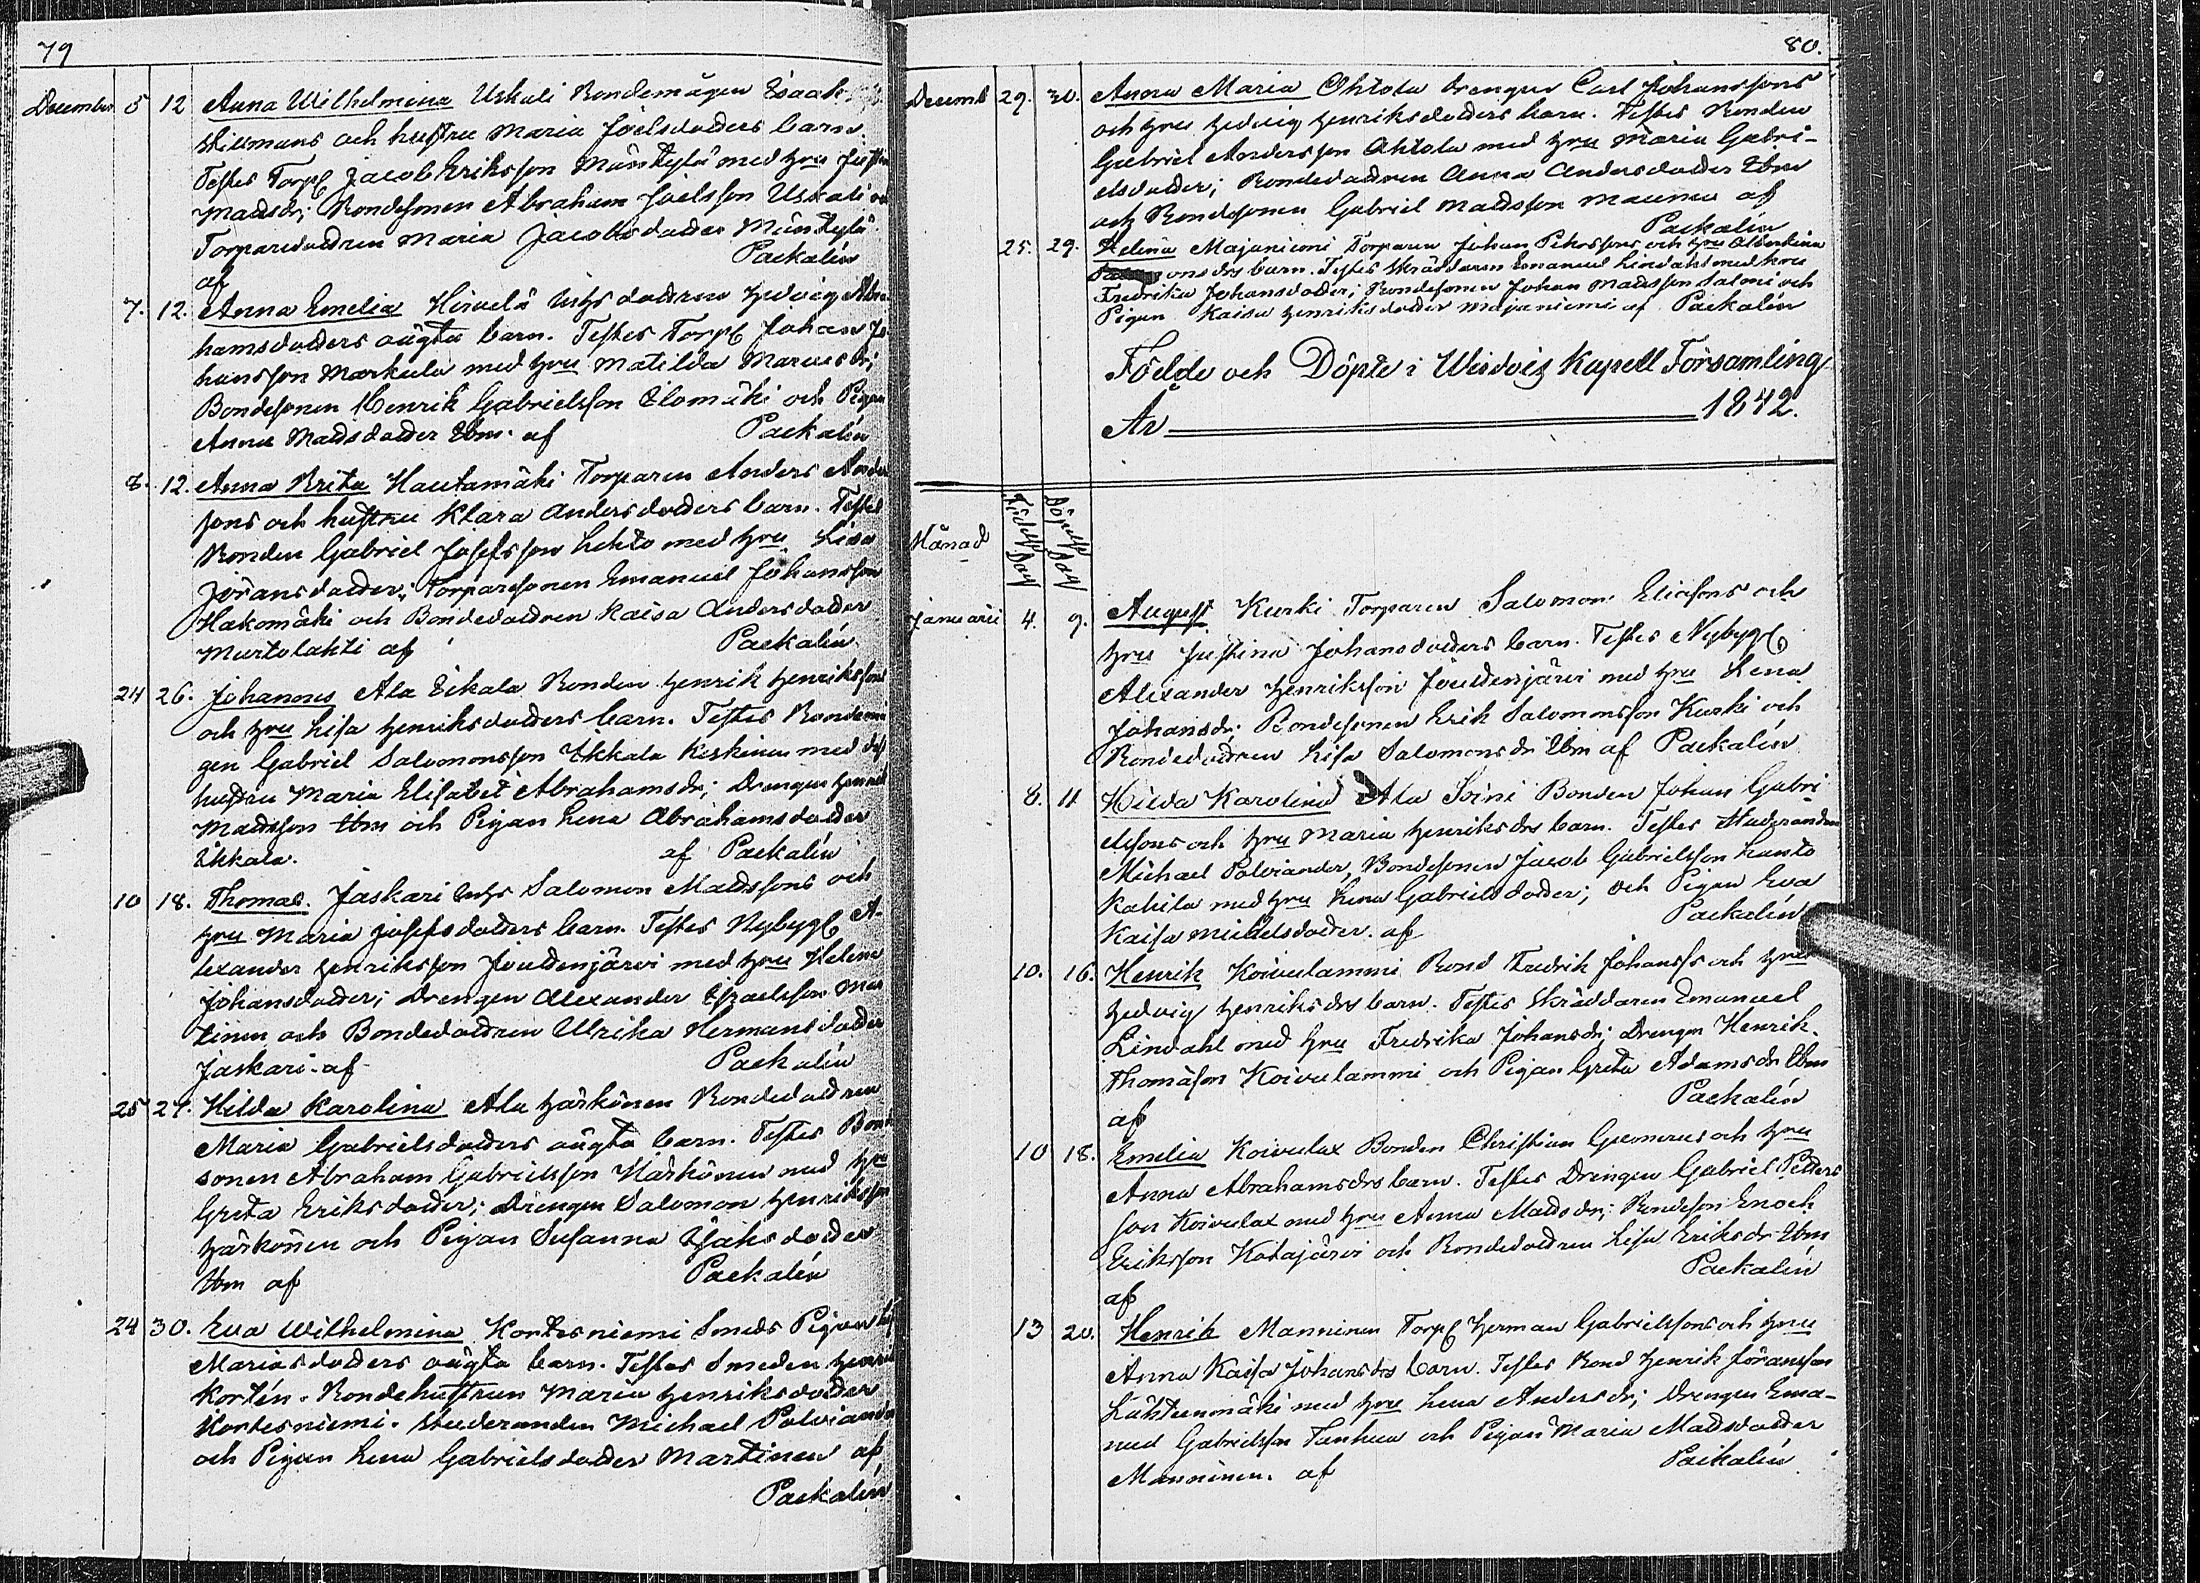 79
December 5 12 Anna Wilhelmina Uskali Bondemågen Esaak
Stillmans och hustru Maria Joelsdotters barn.
Testes Torp Jacob Eriksson Mäntylä med hru
Madsdr; Bondesonen Abraham Joelsson Uskali
Torparedottren Maria Jacobsdotter Mäntylä
af Paekalén
7. 12. Anna Emelia Hirvelä Inhs dottren Hedvig Abra
hamsdotters oägta barn. Testes Torp Johan Jo
hansson Markula med hru Matilda Marcusdr;
Bondesonen Henrik Gabrielsson Elomäki och Pigan
Anna Madsdotter Ibm. af Paekalén
8. 12. Anna Brita Hautamäki Torparen Anders Anders
sons och hustru Klara Andersdotters barn. Testes
Bonden Gabriel Josefsson Lehto med hru Lisa
Jöransdotter; Torparesonen Emanuel Johansson
Hakomäki och Bondedottren Kaisa Andersdotter
Murtolahti af Paekalén
24 26. Johannes Ala Eikala Bonden Henrik Henrikssons
och hru Lisa Henriksdotters barn. Testes Bondemå
gen Gabriel Salomonsson Ekkala Keskinen med
hustru Maria Elisabet Abrahamsdr; Drengen Henrik
Madsson Ibm och Pigan Lena Abrahamsdotter
Ekkala. af Paekalén
10 18. Thomas. Jaskari Inhs Salomon Madssons och
hru Maria Josefsdotters barn. Testes Nybygg A-
lexander Henriksson Jouttenjärvi med hru Helena
Johansdotter; Drengen Alexander Israelsson Mar
tinen och Bondedottren Ulrika Hermansdotter
Jaskari. af Paekalén
25 27. Hilda Karolina Ala Härkönen Bondedottren
Maria Gabrielsdotters oägta barn. Testes Bonde
sonen Abraham Gabrielsson Härkönen med hru
Greta Eriksdotter; Drengen Salomon Henriksson
Härkönen och Pigan Susanna Isaksdotter
Ibm af Paekalén
24 30. Eva Wilhelmina Kortesniemi Smeds Pigan
Mariasdotters oägta barn. Testes Smeden Henrik
Kortén. Bondehustrun Maria Henriksdotter
Kortesniemi. Studeranden Michael Polviander
och Pigan Lena Gabrielsdotter Martinen af
Paekalén
80.
Decemb 29. 30. Anna Maria Ohtola Drengen Carl Johanssons
och hru Hedvig Henriksdotters barn. Testes Bonden
Gabriel Andersson Ahtola med hru Maria Gabri-
elsdotter; Bondedottren Anna Andersdotter Ibm
och Bondesonen Gabriel Madsson Maunu af
Paekalén
25. 29. Helena Majaniemi Torparen Johan Petersons och hru Albertina
onsdrs barn. Testes Skräddaren Emanuel Lindahl med hru
Fredrika Johansdotter; Bondesonen Johan Madsson Salmi och
Pigan Kaisa Henriksdotter Majaniemi af Paekalén
Födde och Döpte i Wisdvig Kapell Församling
År 1842.
Månad Födelse Dag Döpelse Dag
Januarii 4. 9. August Kurki Torparen Salomon Eliasons och
hru Justina Johansdotters barn. Testes Nybygg
Alexander Henriksson Jouttenjärvi med hru Lena
Johansdr; Bondesonen Erik Salomonsson Kurki och
Bondedottren Lisa Salomonsdr Ibm af Paekalén
8. 11 Hilda Karolina Ala Soini Bonden Johan Gabri
elssons och hru Maria Henriksdrs barn. Testes Studeranden
Michael Polviander, Bondesonen Jacob Gabrielsson Kanto
Kahila med hru Lena Gabrielsdotter; och Pigan Eva
Kaisa Mickelsdotter. af Paekalén
10. 16. Henrik Koivulammi Bond Fredrik Johanss och hru
Hedvig Henriksdrs barn. Testes Skräddaren Emanuel
Lindahl med hru Fredrika Johansdr; Drengen Henrik
Thomason Koivulammi och Pigan Greta Adamsdr Ibm
af Paekalén
10 18. Emelia Koivulax Bonden Christian Gromerus och hru
Anna Abrahamsdrs barn. Testes Drengen Gabriel Petters
son Koivulax med hru Anna Madsdr; Bondeson Enoch
Eriksson Kotajärvi och Bondedottren Lisa Eriksdr Ibm
af Paekalén
13 20. Henrik Manninen Torp Herman Gabrielssons och hru
Anna Kaisa Johansdrs barn. Testes Bond Henrik Jöransson
Lähteenmäki med hru Lena Andersdr; Drengen Ema-
nuel Gabrielsson Tanhua och Pigan Maria Madsdotter
Manninen. af Paekalén